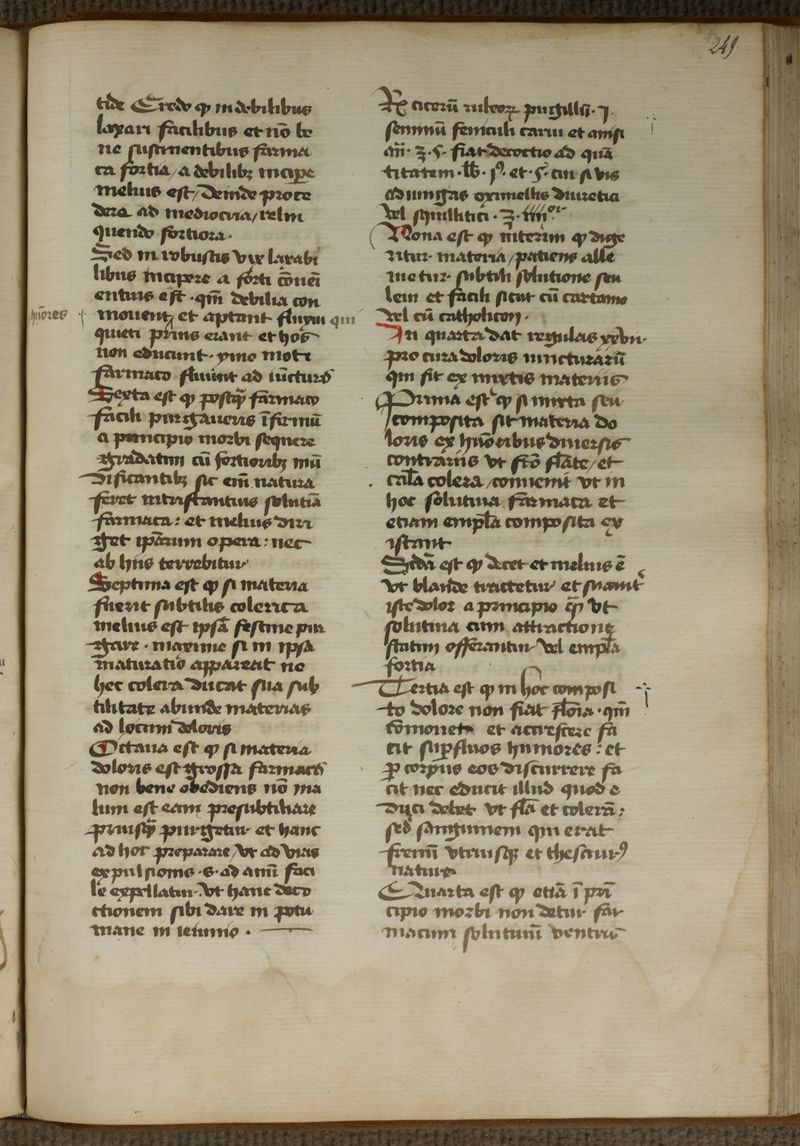 249
tide Credo qꝫ in debilibus
laxari facilibus et nō be
ne sustinentibus farma
ca fortia / a debilibꝫ incipe
melius est / Deinde proce
dera ad mediocria / relin
quendo fortiora.
Sed in robustis vix laxabi
libus incipere a forti cōueī
entius est. qm̄ debilia con
humores
mouent et aptant fluxui qui
quieti prius erant et hos
non educunt. ymo moti
farmaco fluunt ad iūcturas
Sexta est qꝫ postqꝫ farmaco
facili purgaueris īfirmū
a principio morbi sequere
gradatim cū fortioribꝫ mū
dificantibꝫ sic em̄ natura
feret
farmaca: et melius diri
get ipārum opera: nec
ab hiis terrebitur
Septima est qꝫ si materia
fuerit subtilis colerica
melius est ipsā festine pur
gare. maxime si in ipsa
maturatio appareat ne
hec colera ducat sua sub
tilitate abunde materias
ad locum doloris
Octaua est qꝫ si materia
doloris est grossa farmaco
non bene obediens nō ma
lum est eam presubtiliare
priusqꝫ purgetur et hanc
ad hoc preparare / vt ad vias
expulsionis .s. ad anū faci
le expellatur. Vt hanc deco
ctionem sibi dare in potu
mane in ieiunio.
℞ cicerū rubeoꝝ pugillū .j.
seminū feniculi carui et anisi
añ. ʒ. ς. fiat decoctio ad quā
titatem. lb. js. et .ς. cui si vis
adiungas oximellis diuretici
vel squillitici .ʒ. iiijor
Nona est qꝫ interim qꝫ dige
ritur materia / patiens alle
uietur subtili solutione seu
leui et facili sicut cū cartamo
vel cū catholicon.
In quarta dat regulas xxvn.
pro cura doloris iuncturarū
qm̄ sit ex mixtis materiis
Prima est qꝫ si mixta seu
composita sit materia do
loris ex hūoribus diuersis
contrariis vt scō flāte / et
calā colera / conuenit vt in
hoc solutiua farmaca et
etiam emplā composita ex
istant
Scdā est qꝫ decet et melius ē
vt blande tractetur et suauit
iste dolor a principio qꝫ vt
solutiua cum attractione
statim offerantur vel emplā
fortia
Tertia est qꝫ in hoc composi
to dolore non fiat flōia. qm̄
cōmouet et accrescere fa
cit supfluos humores: et
ꝑ corpus eos discurrere fa
cit nec educit illud quod e
duci debet vt flā et colerā:
sed sanguinem qui erat
frenū vtriusqꝫ et thesaurꝰ
nature
Quarta est qꝫ etiā ī prī
cipio morbi non detur far
macum solutiuū ventris